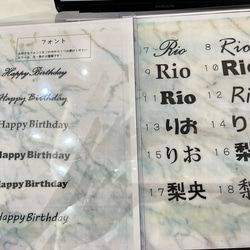 フォント
Happy Birthday
Happy Birthday
Happy Birthday
Happy Birthday
Happy Birthday
Happy Birthday
7 Rio
8 Rio
9 Rio
10 Rio
11 Rio
12 Rio
13 りお
14 りお
15 りお
16
17 梨央
18 梨